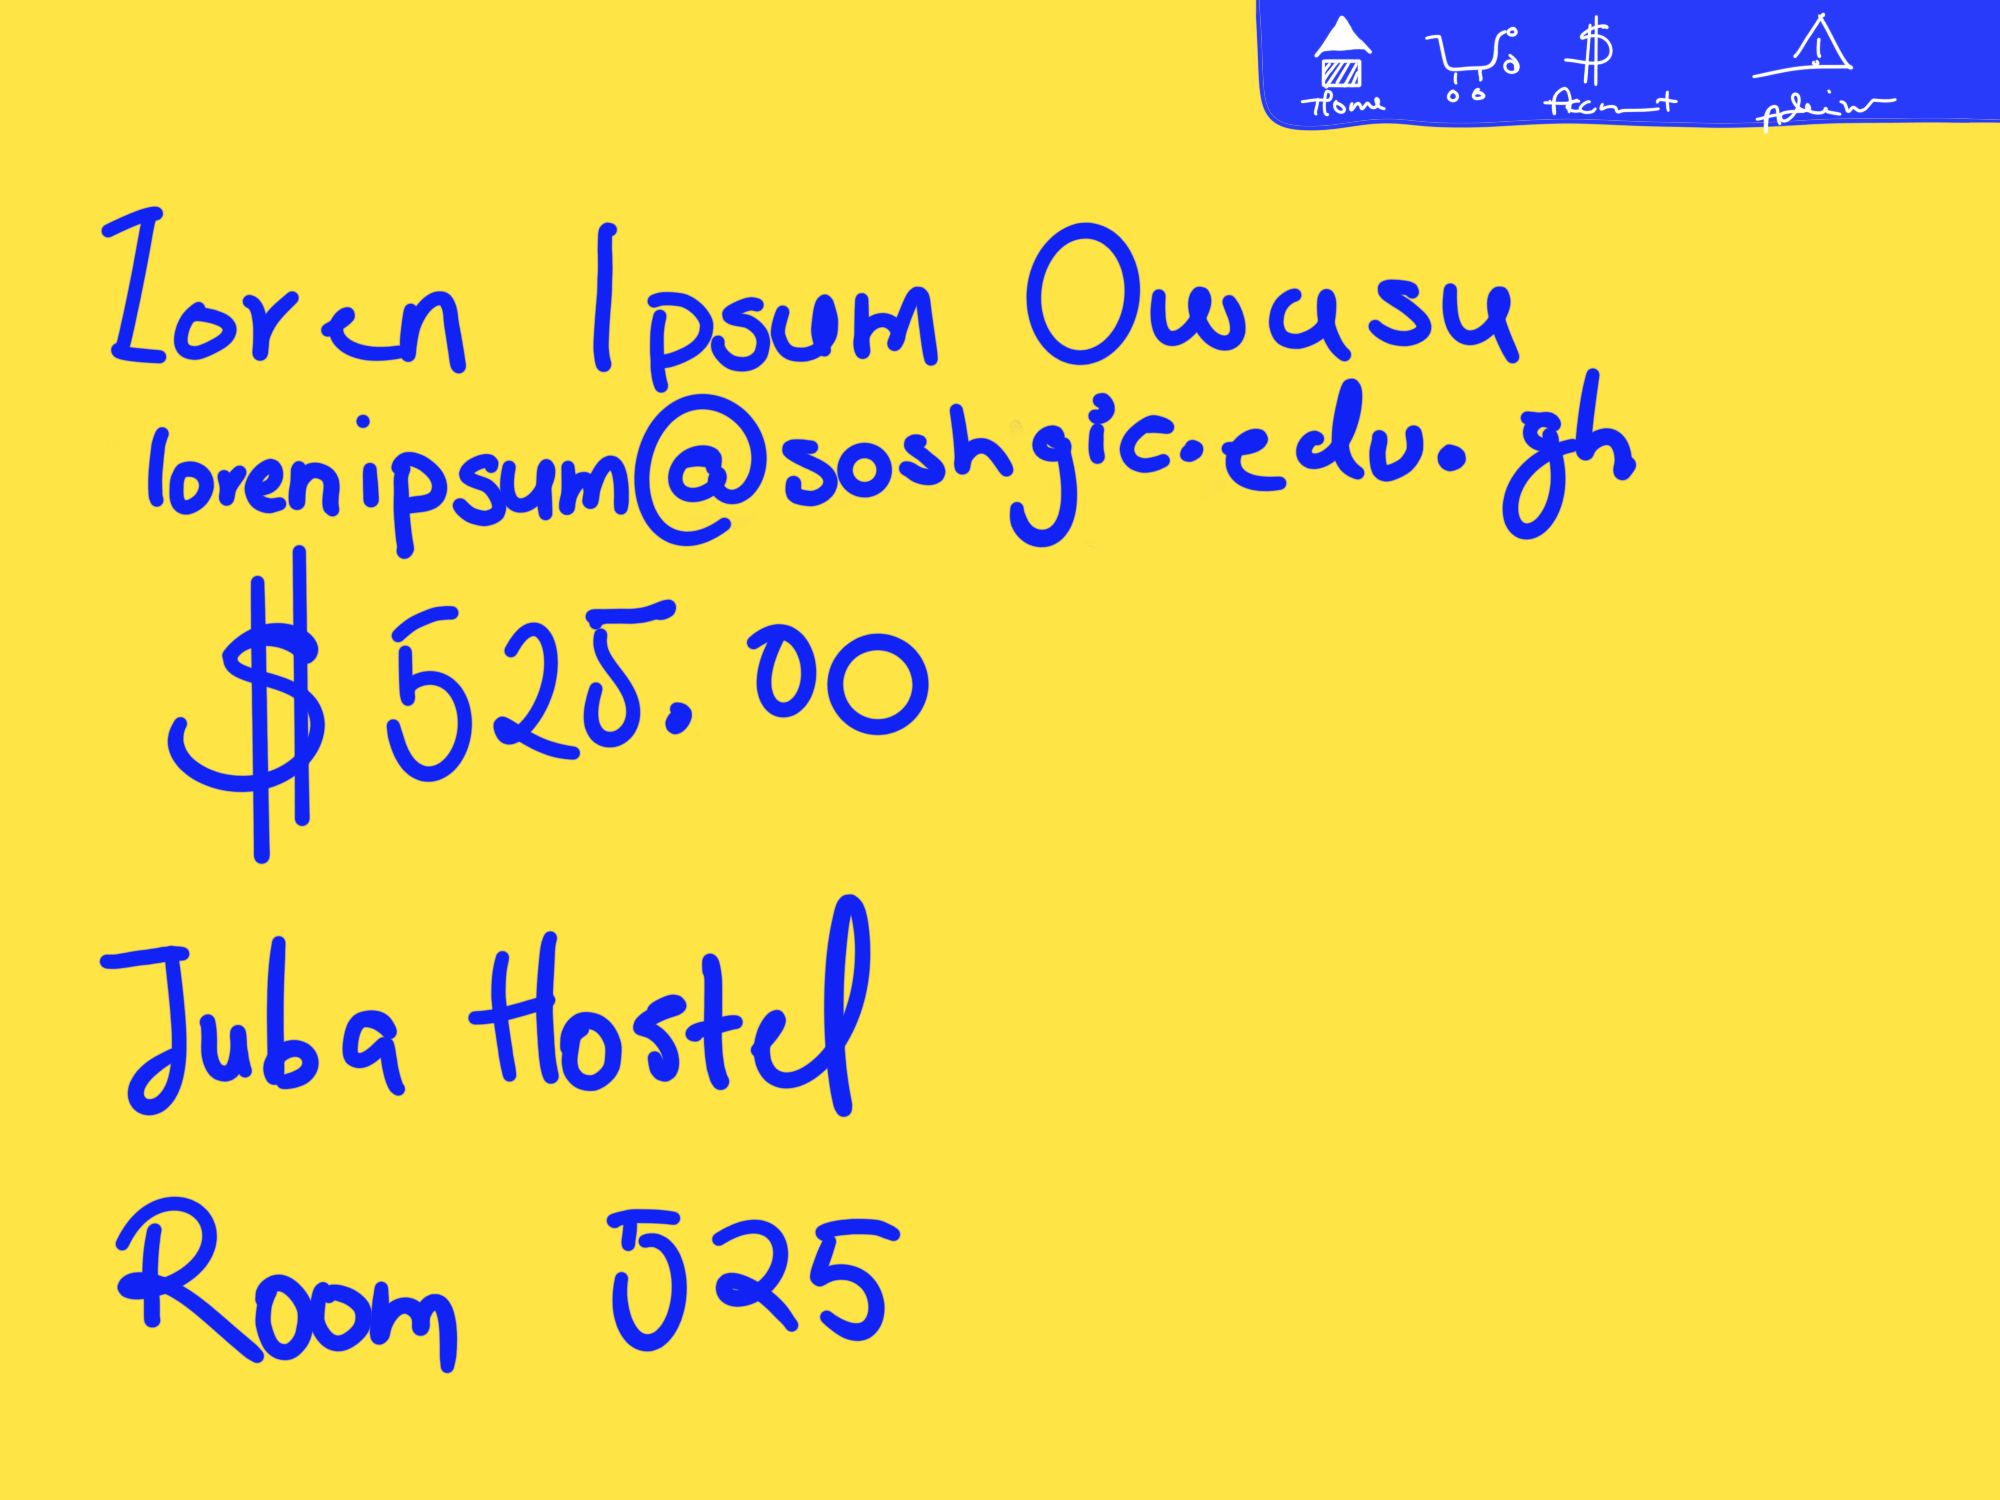 Home Account Admin
Loren Ipsum Owusu
lorenipsum@soshgic.edu.gh
$ 525.00
Juba Hostel
Room 525